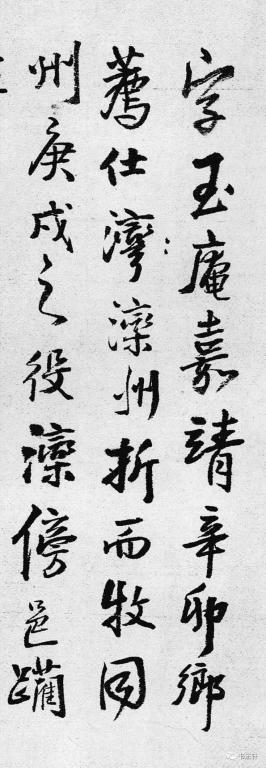 字玉庵嘉靖辛卯鄉
薦仕灣灤州折而牧同
州庚戌之役灤傍邑躪